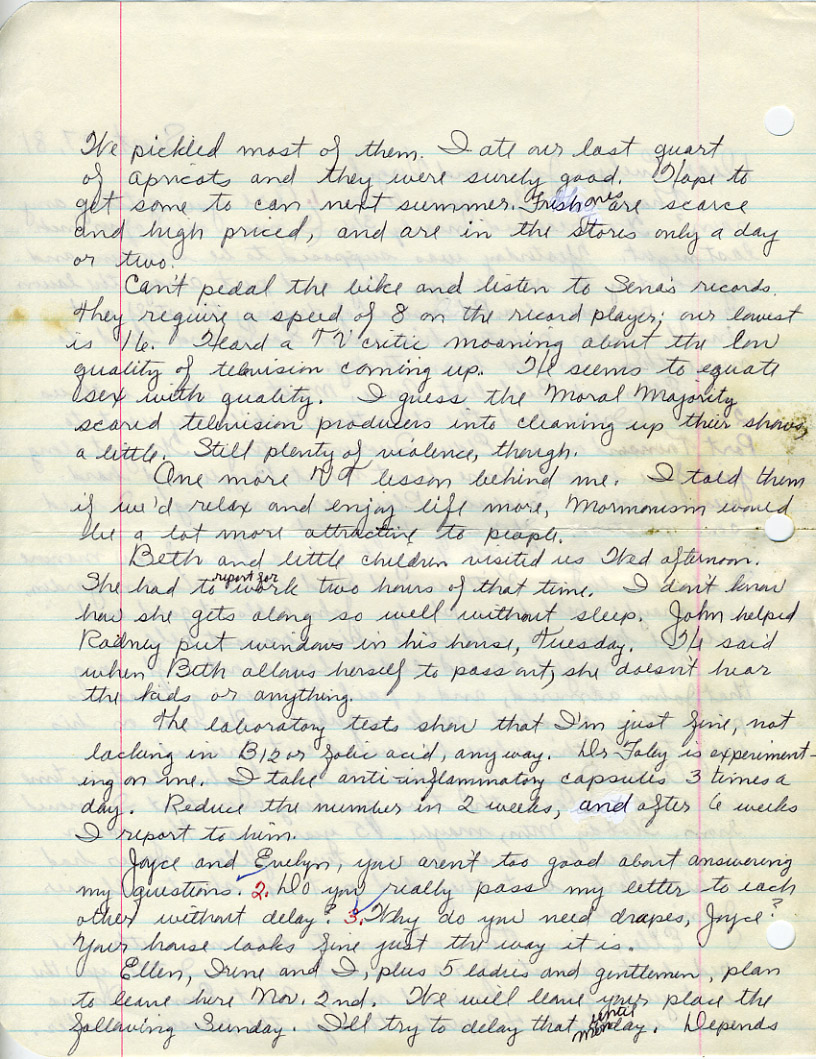 We pickled most of them. I ate our last quart
of apricots and they were surely good. Hope to
get some to can next summer. Fresh ones are scarce
and high priced, and are in the stores only a day
or two.
Can't pedal the bike and listen to Sena's records.
They require a speed of 8 on the record player; our lowest
is 16. Heard a TV critic moaning about the low
quality of television coming up. He seems to equate
sex with quality. I guess the Moral Majority
scared television producers into cleaning up their shows,
a little. Still plenty of violence, though.
One more NT lesson behind me. I told them
if we'd relax and enjoy life more, Mormonism would
be a lot more attractive to people.
Beth and little children visited us Wed afternoon.
She had to report for work two hours of that time. I don't know
how she gets along so well without sleep. John helped
Rodney put windows in his house, Tuesday. He said
when Beth allows herself to pass out, she doesn't hear
the kids or anything.
The laboratory tests show that I'm just fine, not
lacking in B12 or folic acid, anyway. Dr Foley is experiment-
ing on me. I take anti-inflammatory capsules 3 times a
day. Reduce the number in 2 weeks, and after 6 weeks
I report to him.
Joyce and Evelyn, you aren't too good about answering
my questions. 2. Do you really pass my letter to each
other without delay? 3. Why do you need drapes, Joyce?
Your house looks fine just the way it is.
Ellen, Irene and I, plus 5 ladies and gentlemen, plan
to leave here Nov. 2nd. We will leave your place the
following Sunday. I'll try to delay that until Monday. Depends